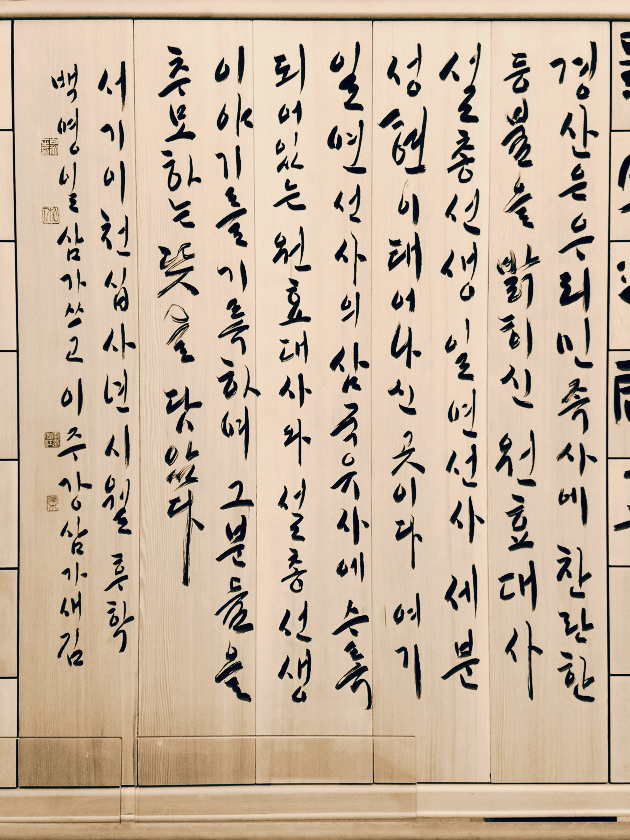 경산은 우리 민족사에 찬란한
등불을 밝히신 원효대사
설총선생 일연선사 세 분
성현이 태어나신 곳이다 여기
일연선사의 삼국유사에 수록
되어있는 원효대사와 설총선생
이야기를 기록하여 그분들을
추모하는 뜻을 담았다
서기 이천십사년 시월 후학
백영일 삼가 쓰고 이주강 삼가 새김